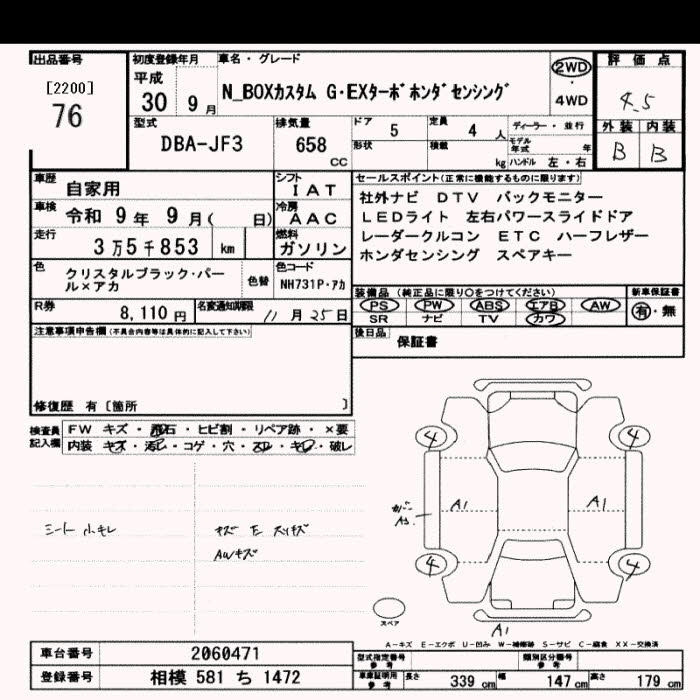 出品番号 初度登録年月 車名・グレード 評価点
[2200] 平成 2WD
76 30 9月 N_BOXカスタム G・EXターボ ホンダセンシング 4WD 4.5
型式 排気量 ドア 5 定員 4人 ディーラー・並行 外装 内装
DBA-JF3 658 cc 形状 積載 kg モデル年式 年 B B
ハンドル 左・右
車歴 自家用 シフト IAT セールスポイント(正常に機能するものに限ります)
車検 令和 9年 9月( 日) 冷房 AAC 社外ナビ DTV バックモニター
LEDライト 左右パワースライドドア
走行 3万5千853 km 燃料 ガソリン レーダークルコン ETC ハーフレザー
ホンダセンシング スペアキー
色 クリスタルブラック・パール×アカ 色替 色コード NH731P・アカ
装備品(純正品に限り○をつけてください) 新車保証書
R券 8,110円 名変通知期限 11月25日 PS PW ABS エアB AW 有・無
SR ナビ TV カワ
注意事項申告欄(不具合内容等は具体的に記入して下さい) 後日品 保証書
修復歴 有〔箇所 〕
検査員記入欄 FW キズ・飛石・ヒビ割・リペア跡・×要
内装 キズ・汚れ・コゲ・穴・スレ・キレ・破レ
4 4
A1 A1
カバー A3
シート 小キレ キズ E スリキズ
AWキズ
4 4
スペア
A1
A-キズ E-エクボ U-凹み W-補修跡 S-サビ C-腐食 XX-交換済
車台番号 2060471 型式指定番号 参考 類別区分番号 参考
登録番号 相模 581 ち 1472 車庫証明用 参考 長さ 339cm 幅 147cm 高さ 179cm